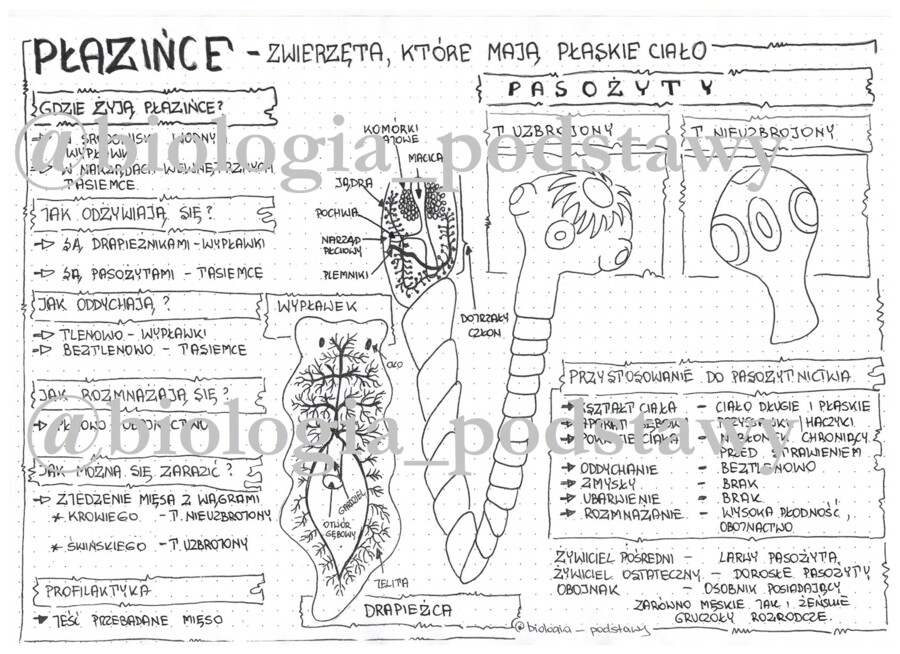 PŁAZIŃCE - ZWIERZĘTA, KTÓRE MAJĄ PŁASKIE CIAŁO
GDZIE ŻYJĄ PŁAZIŃCE?
W ŚRODOWISKU WODNYM
WYPŁAWKI
W NARZĄDACH WEWNĘTRZNYCH
TASIEMCE
JAK ODŻYWIAJĄ SIĘ?
SĄ DRAPIEŻNIKAMI - WYPŁAWKI
SĄ PASOŻYTAMI - TASIEMCE
JAK ODDYCHAJĄ?
TLENOWO - WYPŁAWKI
BEZTLENOWO - TASIEMCE
JAK ROZMNAŻAJĄ SIĘ?
PŁCIOWO -
JAK MOŻNA SIĘ ZARAZIĆ?
ZJEDZENIE MIĘSA Z WĄGRAMI
* KROWIEGO - T. NIEUZBROJONY
* ŚWIŃSKIEGO - T. UZBROJONY
PROFILAKTYKA
JEŚĆ PRZEBADANE MIĘSO
KOMÓRKI
JAJOWE
MACICA
JĄDRA
POCHWA
NARZĄD
PŁCIOWY
PLEMNIKI
DOJRZAŁY
CZŁON
WYPŁAWEK
OKO
GARDZIEL
OTWÓR
GĘBOWY
JELITA
DRAPIEŻCA
PASOŻYTY
T. UZBROJONY
T. NIEUZBROJONY
PRZYSTOSOWANIE DO PASOŻYTNICTWA
KSZTAŁT CIAŁA - CIAŁO DŁUGIE I PŁASKIE
APARAT GĘBOWY - PRZYSSAWKI, HACZYKI
POWŁOKA CIAŁA - NABŁONEK CHRONIĄCY
PRZED STRAWIENIEM
ODDYCHANIE - BEZTLENOWO
ZMYSŁY - BRAK
UBARWIENIE - BRAK
ROZMNAŻANIE - WYSOKA PŁODNOŚĆ,
OBOJNACTWO
ŻYWICIEL POŚREDNI - LARWY PASOŻYTA,
ŻYWICIEL OSTATECZNY - DOROSŁE PASOŻYTY
OBOJNAK - OSOBNIK POSIADAJĄCY
ZARÓWNO MĘSKIE JAK I ŻEŃSKIE
GRUCZOŁY ROZRODCZE.
@biologia_podstawy
@biologia_podstawy
@biologia_podstawy